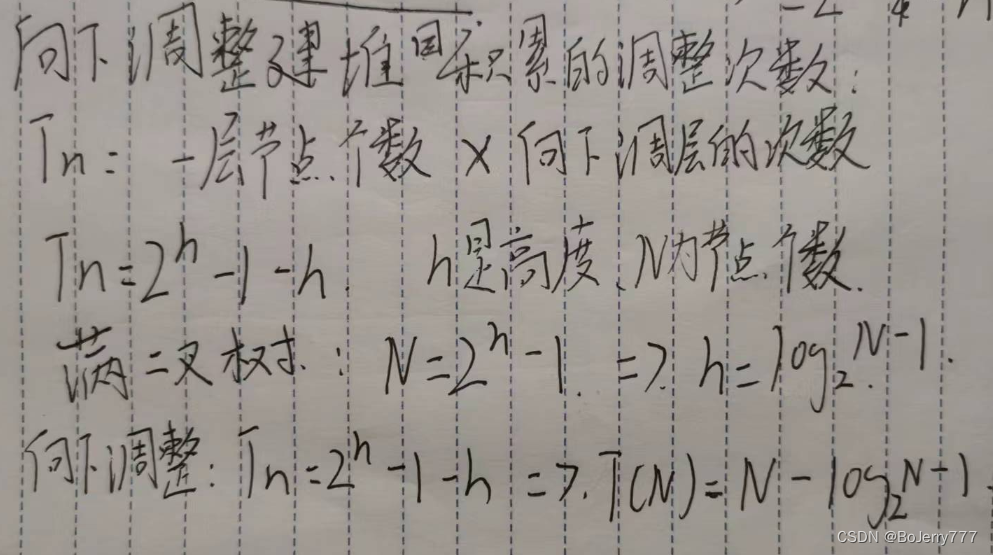 向下调整建堆因积累的调整次数:
Tn = 一层节点个数 × 向下调层的次数
Tn = 2^h - 1 - h. h是高度、N为节点个数.
满二叉树: N = 2^h - 1. => h = log₂^N-1.
向下调整: Tn = 2^h - 1 - h => T(N) = N - log₂^N-1.
CSDN @BoJerry777